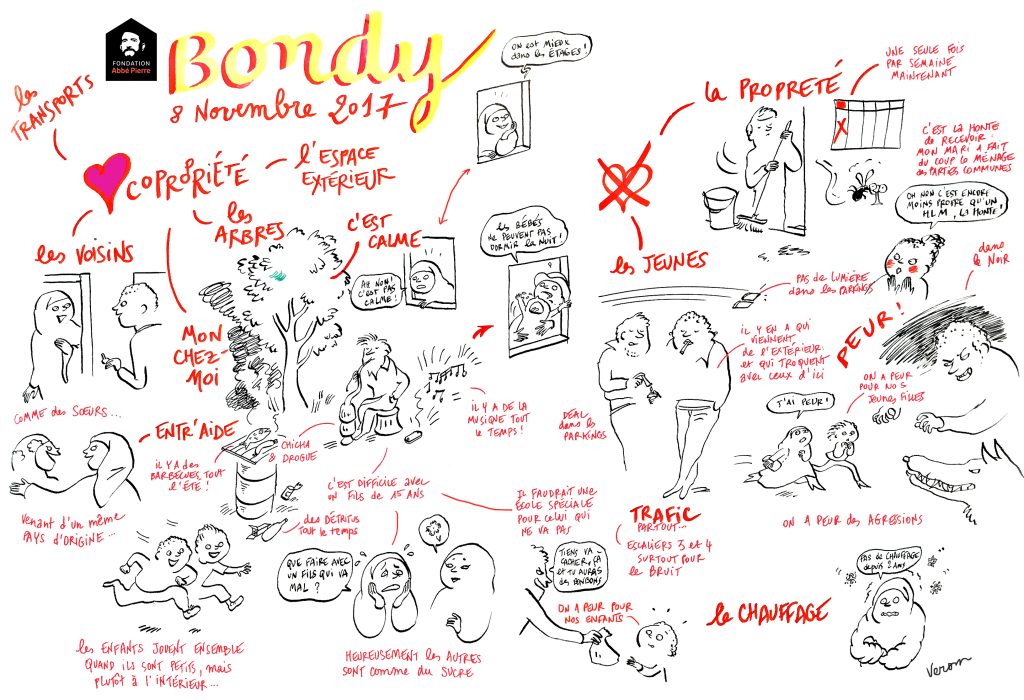 FONDATION
Abbé Pierre
Bondy
8 Novembre 2017
les
TRANSPORTS
COPROPRIÉTÉ
l'ESPACE
EXTÉRIEUR
les VOISINS
les
ARBRES
C'EST
CALME
MON
CHEZ-
MOI
COMME des SOEURS...
ENTR'AIDE
Venant d'un même
PAYS d'ORIGINE...
les ENFANTS JOUENT ENSEMBLE
QUAND ILS SONT PETITS, mais
PLUTÔT À l'INTÉRIEUR...
ON est MIEUX
dans les ÉTAGES!
AH NON!
C'EST PAS
CALME!
les BÉBÉS
NE PEUVENT PAS
DORMIR la NUIT!
IL Y A DE LA
MUSIQUE TOUT
le TEMPS!
CHICHA
& DROGUE
IL Y A des
BARBECUES TOUT
l'ÉTÉ!
des DÉTRITUS
TOUT le TEMPS
C'EST DIFFICILE AVEC
UN FILS de 15 ANS
QUE FAIRE AVEC
UN FILS QUI VA
MAL?
HEUREUSEMENT les AUTRES
SONT COMME du SUCRE
IL FAUDRAIT UNE
ÉCOLE SPÉCIALE
POUR CELUI QUI
NE VA PAS
la PROPRETÉ
UNE SEULE FOIS
PAR SEMAINE
MAINTENANT
C'EST LA HONTE
de RECEVOIR:
MON MARI A FAIT
DU COUP le MÉNAGE
des PARTIES COMMUNES
OH NON C'EST ENCORE
MOINS PROPRE QU'UN
HLM, LA HONTE!
les JEUNES
PAS de LUMIÈRE
dans les PARKINGS
dans
le NOIR
PEUR!
IL Y EN A QUI
VIENNENT
de l'EXTÉRIEUR
et QUI TROQUENT
avec CEUX d'ICI
DEAL
dans les
PARKINGS
ON A PEUR
POUR NOS
JEUNES FILLES
J'AI PEUR!
ON A PEUR des AGRESSIONS
TRAFIC
PARTOUT...
ESCALIERS 3 et 4
SURTOUT POUR
le BRUIT
TIENS VA
CACHER ÇA
et TU AURAS
des BONBONS
ON A PEUR POUR
NOS ENFANTS
le CHAUFFAGE
PAS de CHAUFFAGE
depuis 2 ANS
Verom